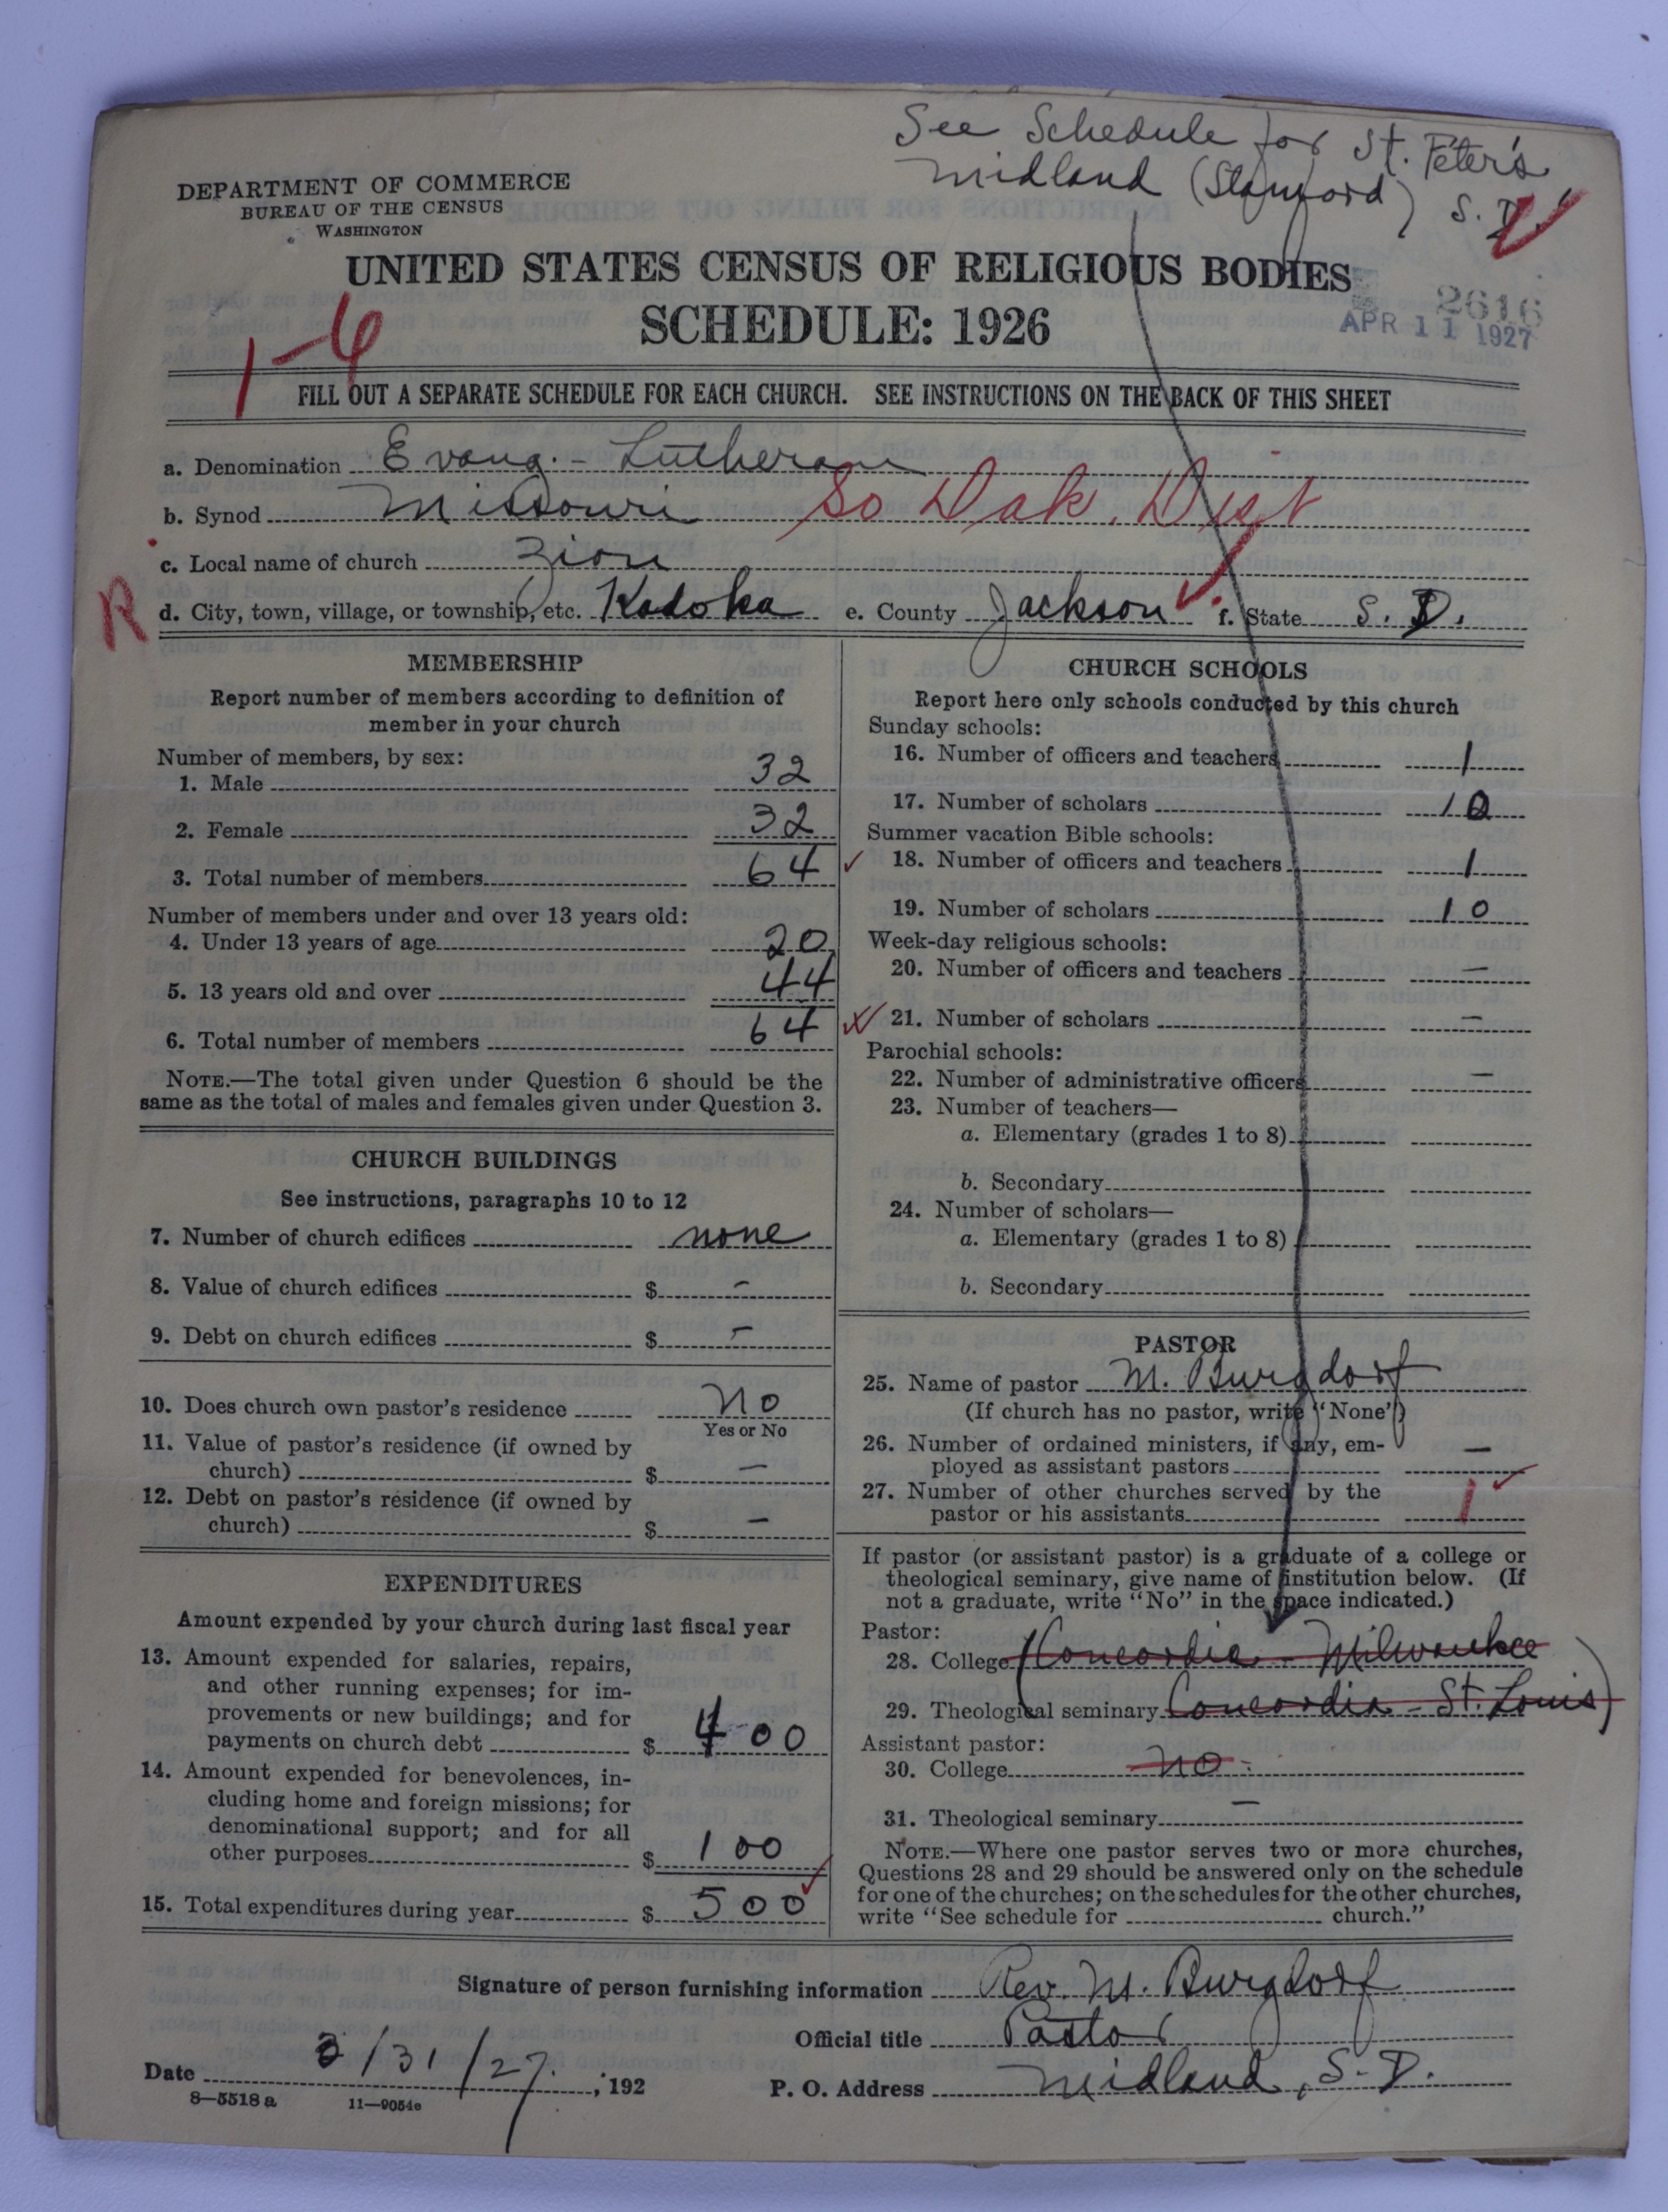 See Schedule for St. Peter's
Midland (Stamford) S.D.
DEPARTMENT OF COMMERCE
BUREAU OF THE CENSUS
WASHINGTON
UNITED STATES CENSUS OF RELIGIOUS BODIES
SCHEDULE: 1926
2616
APR 11 1927
1-6
FILL OUT A SEPARATE SCHEDULE FOR EACH CHURCH. SEE INSTRUCTIONS ON THE BACK OF THIS SHEET
a. Denomination Evang.-Lutheran
b. Synod Missouri So Dak. Dist
c. Local name of church Zion
R d. City, town, village, or township, etc. Kadoka e. County Jackson f. State S. D.
MEMBERSHIP
Report number of members according to definition of
member in your church
Number of members, by sex:
1. Male 32
2. Female 32
3. Total number of members 64
Number of members under and over 13 years old:
4. Under 13 years of age 20
5. 13 years old and over 44
6. Total number of members 64
NOTE.—The total given under Question 6 should be the
same as the total of males and females given under Question 3.
CHURCH BUILDINGS
See instructions, paragraphs 10 to 12
7. Number of church edifices none
8. Value of church edifices $ -
9. Debt on church edifices $ -
10. Does church own pastor's residence No
Yes or No
11. Value of pastor's residence (if owned by
church) $ -
12. Debt on pastor's residence (if owned by
church) $ -
EXPENDITURES
Amount expended by your church during last fiscal year
13. Amount expended for salaries, repairs,
and other running expenses; for im-
provements or new buildings; and for
payments on church debt $ 400
14. Amount expended for benevolences, in-
cluding home and foreign missions; for
denominational support; and for all
other purposes $ 100
15. Total expenditures during year $ 500
CHURCH SCHOOLS
Report here only schools conducted by this church
Sunday schools:
16. Number of officers and teachers 1
17. Number of scholars 10
Summer vacation Bible schools:
18. Number of officers and teachers 1
19. Number of scholars 10
Week-day religious schools:
20. Number of officers and teachers -
21. Number of scholars -
Parochial schools:
22. Number of administrative officers -
23. Number of teachers—
a. Elementary (grades 1 to 8)
b. Secondary
24. Number of scholars—
a. Elementary (grades 1 to 8)
b. Secondary
PASTOR
25. Name of pastor M. Burgdorf
(If church has no pastor, write "None")
26. Number of ordained ministers, if any, em-
ployed as assistant pastors -
27. Number of other churches served by the
pastor or his assistants 1
If pastor (or assistant pastor) is a graduate of a college or
theological seminary, give name of institution below. (If
not a graduate, write "No" in the space indicated.)
Pastor:
28. College (Concordia - Milwaukee
29. Theological seminary Concordia - St. Louis)
Assistant pastor:
30. College no -
31. Theological seminary -
NOTE.—Where one pastor serves two or more churches,
Questions 28 and 29 should be answered only on the schedule
for one of the churches; on the schedules for the other churches,
write "See schedule for church."
Signature of person furnishing information Rev. M. Burgdorf
Official title Pastor
Date 3/31/27. , 192
P. O. Address Midland, S. D.
8—5518 a 11—9054e